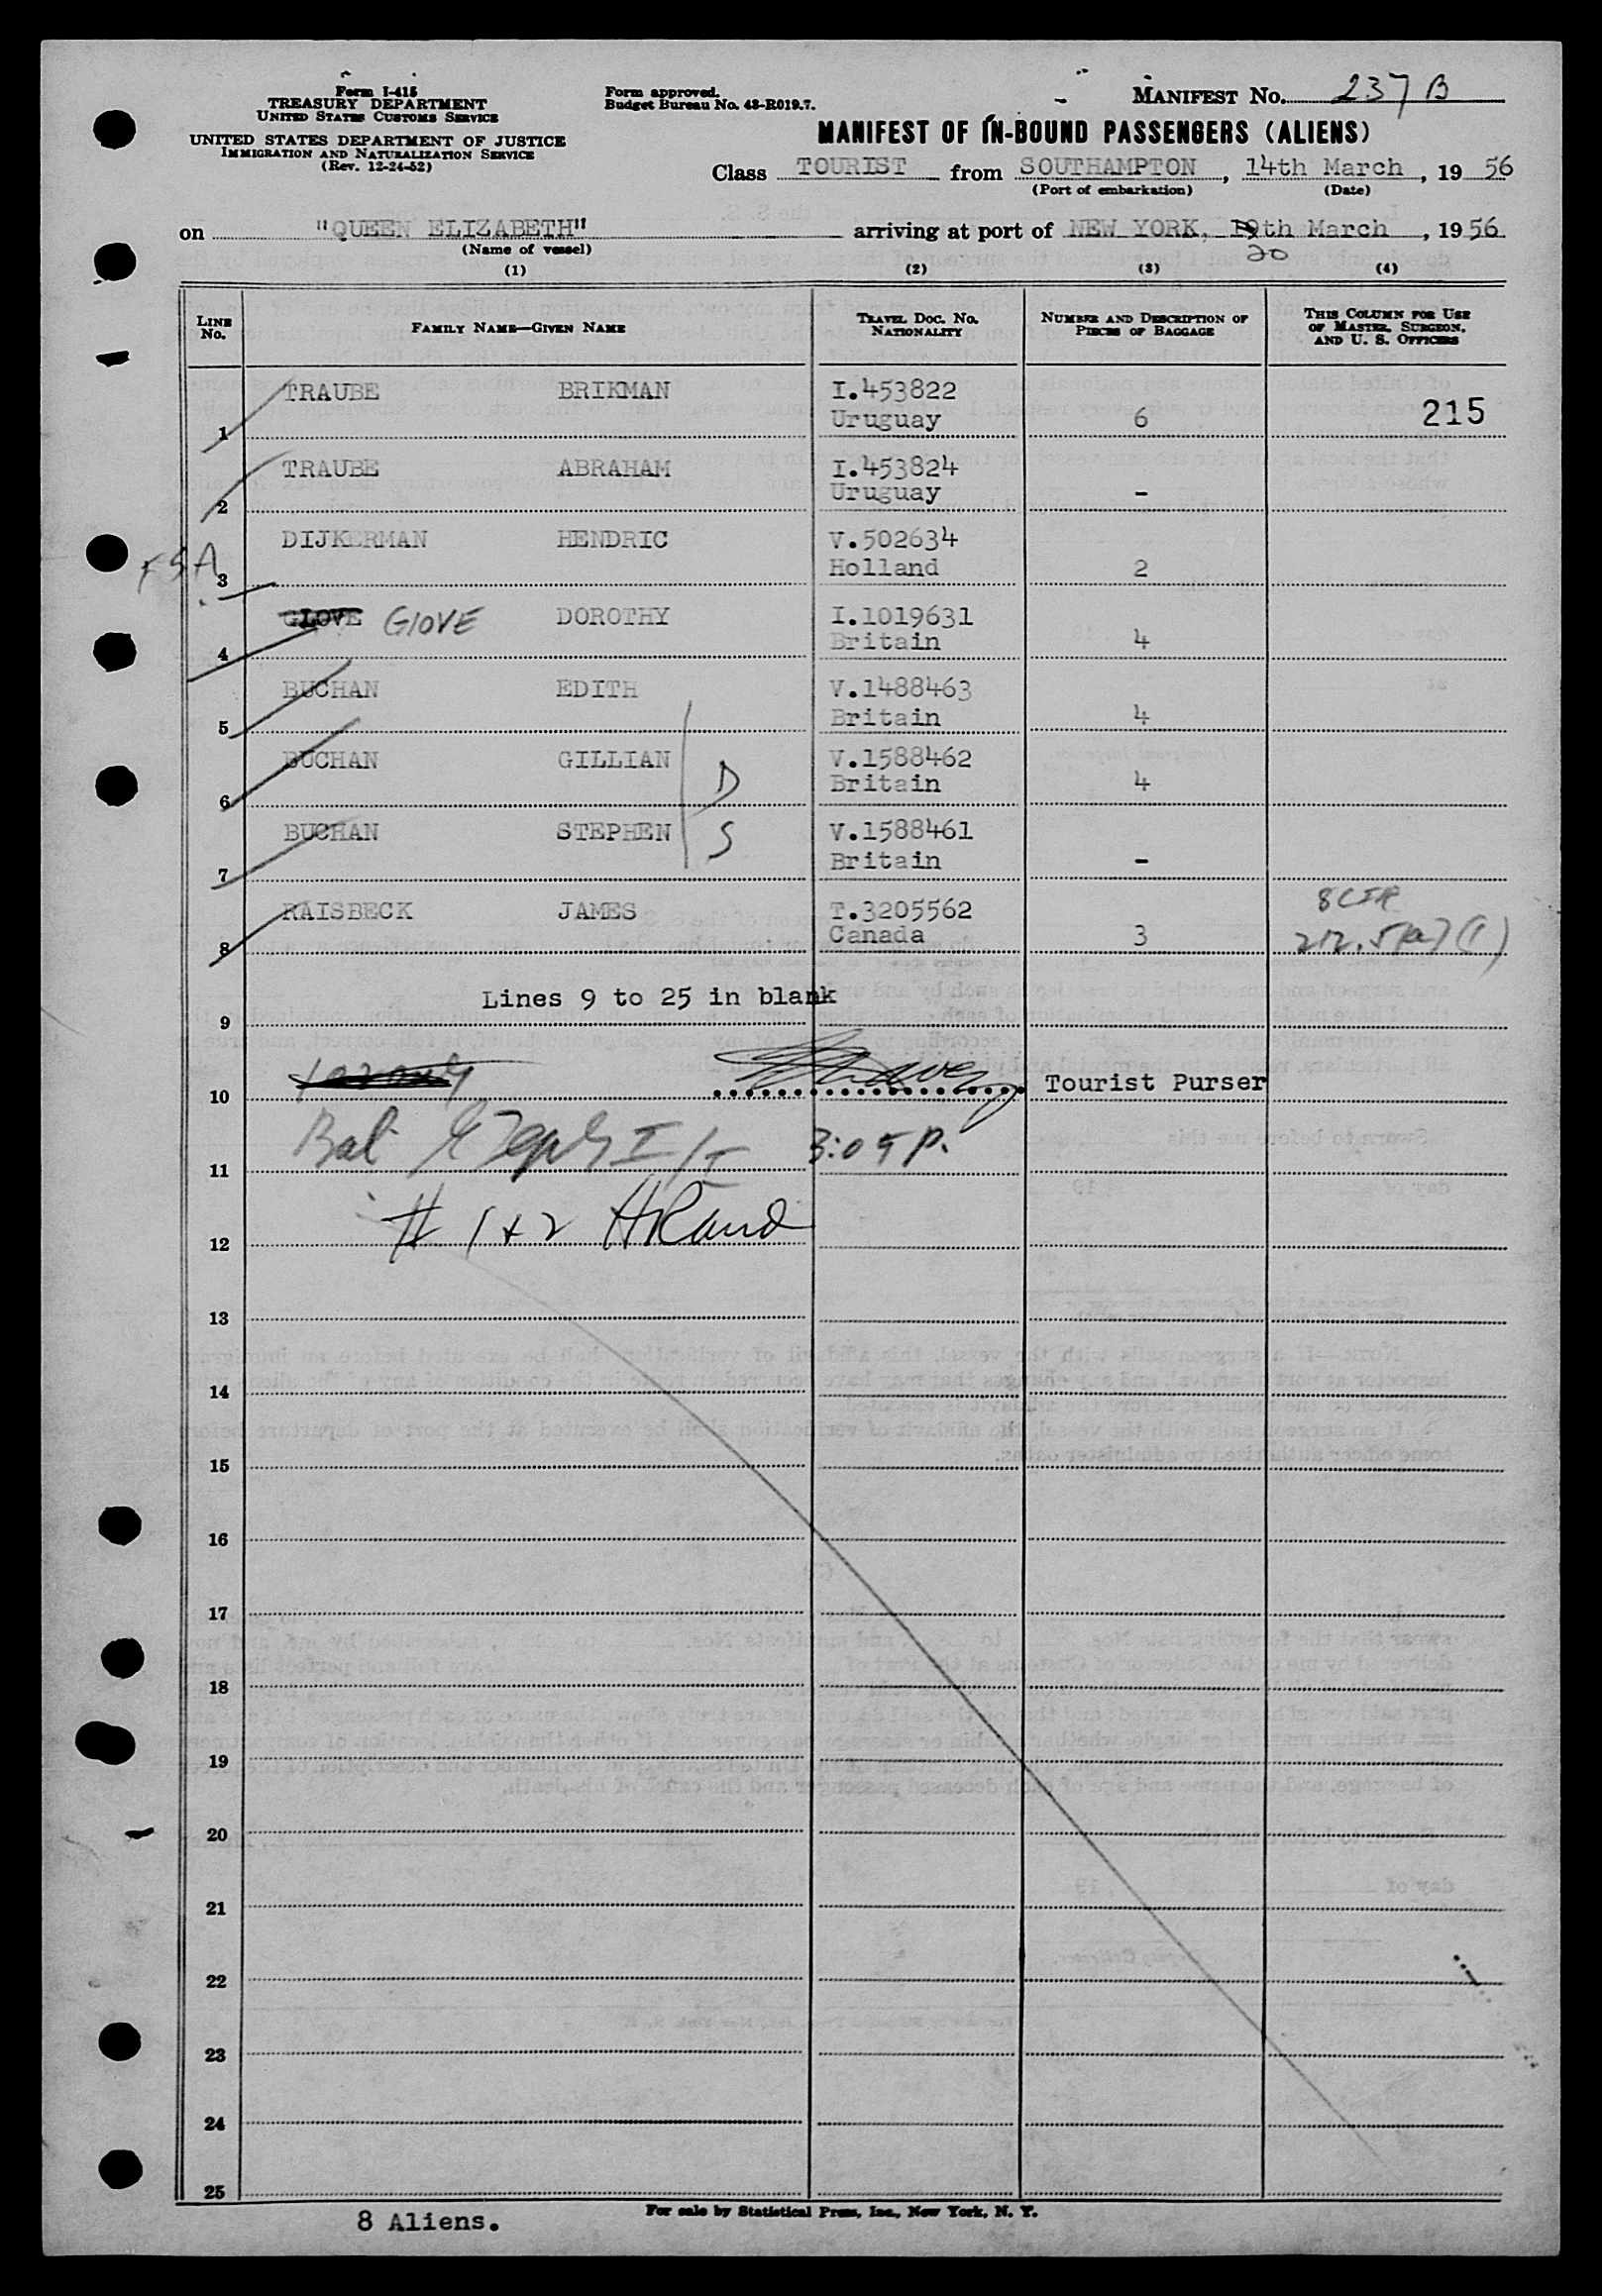 Form I-415
TREASURY DEPARTMENT
UNITED STATES CUSTOMS SERVICE
UNITED STATES DEPARTMENT OF JUSTICE
IMMIGRATION AND NATURALIZATION SERVICE
(Rev. 12-24-52)
Form approved.
Budget Bureau No. 43-R019.7.
MANIFEST NO. 237 B
MANIFEST OF IN-BOUND PASSENGERS (ALIENS)
Class TOURIST from SOUTHAMPTON, 14th March, 19 56
(Port of embarkation) (Date)
on "QUEEN ELIZABETH" arriving at port of NEW YORK, 19th March, 19 56
20
(Name of vessel)
(1) (2) (3) (4)
LINE NO. FAMILY NAME—GIVEN NAME TRAVEL DOC. NO. NATIONALITY NUMBER AND DESCRIPTION OF PIECES OF BAGGAGE THIS COLUMN FOR USE OF MASTER, SURGEON, AND U. S. OFFICERS
TRAUBE BRIKMAN I.453822
1 Uruguay 6 215
TRAUBE ABRAHAM I.453824
2 Uruguay -
DIJKERMAN HENDRIC V.502634
FSA 3 Holland 2
GLOVE GlOVE DOROTHY I.1019631
4 Britain 4
BUCHAN EDITH V.1488463
5 Britain 4
BUCHAN GILLIAN D V.1588462
6 Britain 4
BUCHAN STEPHEN S V.1588461
7 Britain -
RAISBECK JAMES T.3205562 8 CFR
8 Canada 3 212.5(a)(1)
Lines 9 to 25 in blank
9
10 Tourist Purser
11 Bal I/I 3:05 P.
12 # 1+2 HRand
13
14
15
16
17
18
19
20
21
22
23
24
25
8 Aliens.
For sale by Statistical Press, Inc., New York, N. Y.